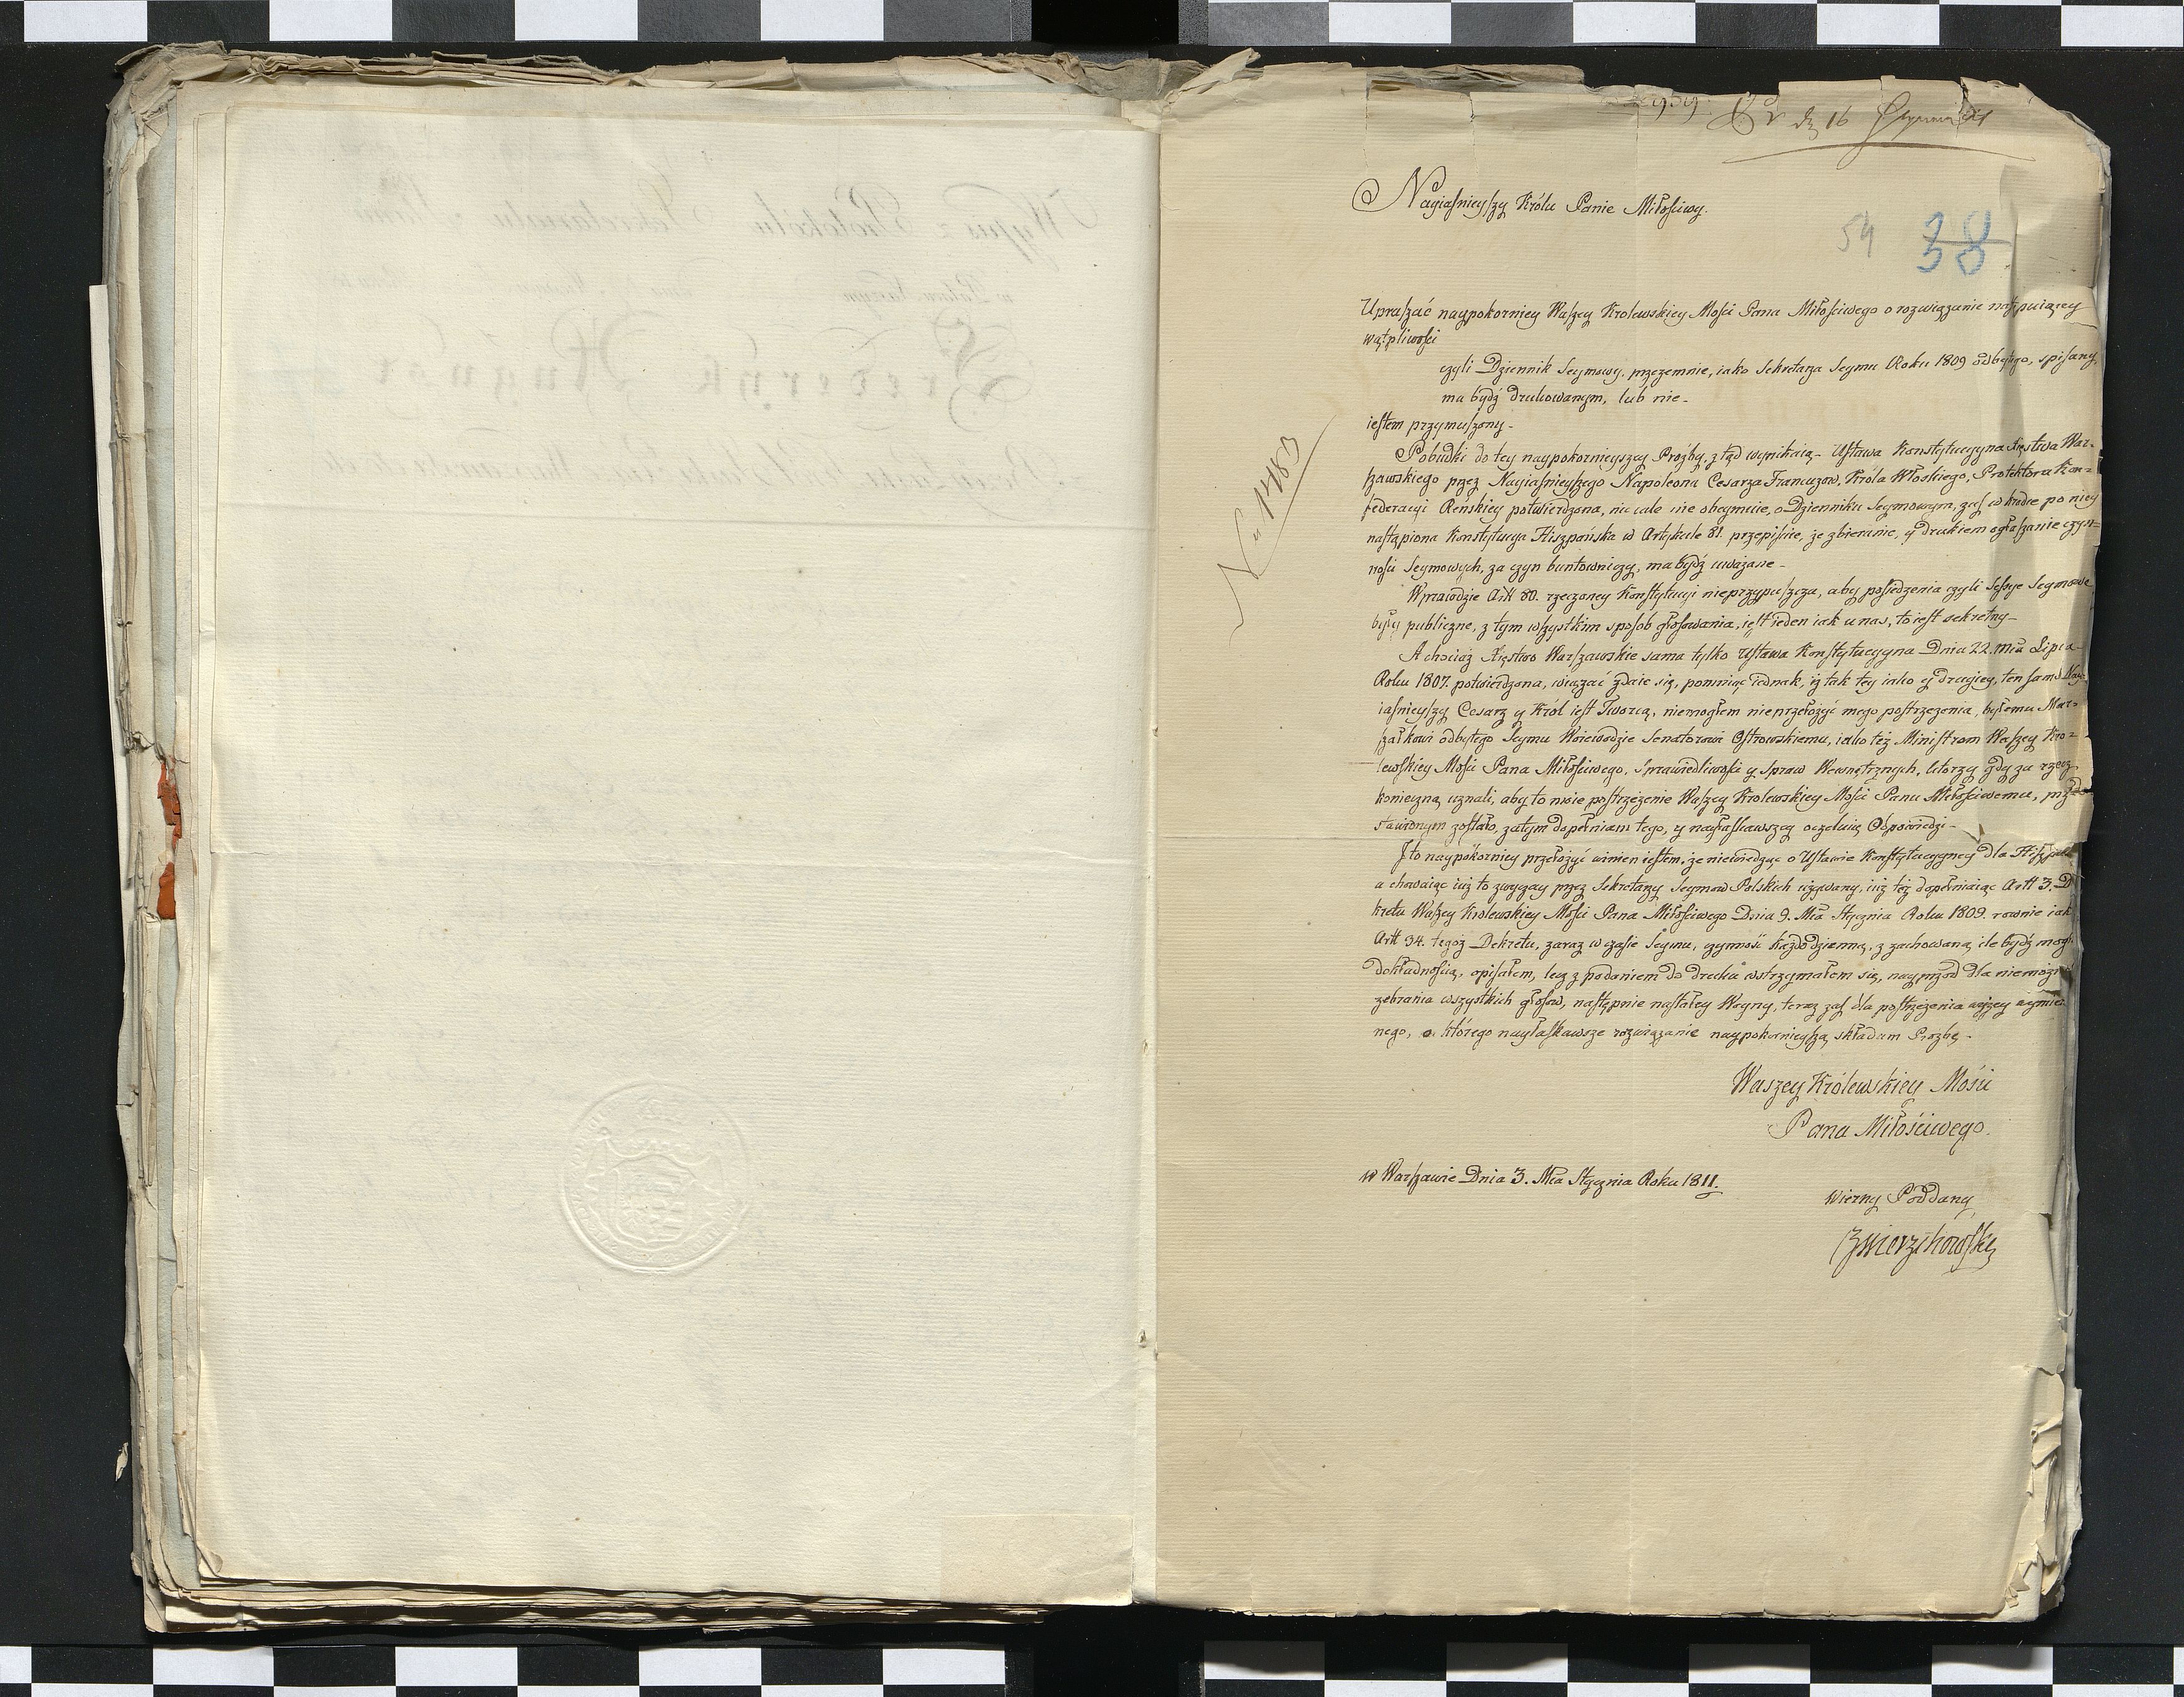 dz 16 Stycznia
Nayiaśnieyszy Królu Panie Miłościwy.
54 38
Upraszać naypokorniey Waszey Krolewskiey Mości Pana Miłościwego o rozwiązanie następuiącey
wątpliwości
czyli Dziennik Seymowy, przezemnie, iako Sekretarza Seymu Roku 1809 odbytego, spisany,
ma bydź drukowanym, lub nie-
iestem przymuszony-
Pobudki do tey naypokornieyszey Prózby, ztąd wynikaią- Ustawa Konstytucyyna Xięstwa War-
szawskiego przez Nayiaśnieyszego Napoleona Cesarza Francuzow, Króla Włoskiego, Protektora Kon-
federacyi Reńskiey potwierdzona, nic cale nie obeymuie, o Dzienniku Seymowym, zaś wkrótce po niey
nastąpiona Konstytucya Hiszpańska w Artykule 81. przepisuie, że zbieranie, y drukiem ogłaszanie czyn-
nosci Seymowych, za czyn buntowniczy, ma bydź uważane-
Wprawdzie Artt 80. rzeczoney Konstytucyi nieprzypuszcza, aby posiedzenia czyli Sessye Seymowe
były publiczne, z tym wszystkim sposob głosowania, iest ieden iak u nas, to iest sekretny-
A chociaż Xięstwo Warszawskie sama tylko Ustawa Konstytucyyna Dnia 22. Mca Lipca
Roku 1807. potwierdzona, wiązać zdaie się, pomniąc iednak, iż tak tey iako y drugiey, ten sam Nay-
iaśnieyszy Cesarz y Król iest Tworcą, niemogłem nieprzełożyć mego postrzeżenia, byłemu Mar-
szałkowi odbytego Seymu Woiewodzie Senatorowi Ostrowskiemu, iako też Ministrom Waszey Kro-
lewskiey Mości Pana Miłościwego, Sprawiedliwości y Spraw Wewnętrznych, ktorzy gdy za rzecz
konieczną uznali, aby to moie postrzeżenie Waszey Krolewskiey Mości Panu Miłościwemu, przed-
stawionym zostało, zatym dopełniam tego, y nayłaskawszey oczekuię Odpowiedzi-
Ito naypokorniey przełożyć winien iestem, że niewiedząc o Ustawie Konstytucyyney dla Hiszpanii
a chowaiąc iuż to zwyczay przez Sekretarzy Seymow Polskich używany, iuż też dopełniaiąc Artt 3. De-
kretu Waszey Krolewskiey Mości Pana Miłościwego Dnia 9. Mca Stycznia Roku 1809. rownie iak
Artt 34. tegoż Dekretu, zaraz w czasie Seymu, czynność każdodzienną, z zachowaną ile bydź mogło
dokładnością, opisałem, lecz z podaniem do druku wstrzymałem się, nayprzod dla niemożności
zebrania wszystkich głosow, następnie nastałey Woyny, teraz zaś dla postrzeżenia wyżey wymie-
nego, o którego nayłaskawsze rozwiązanie naypokornieyszą składam Prozbę-
Waszey Królewskiey Mości
Pana Miłościwego.
w Warszawie Dnia 3. Mca Stycznia Roku 1811.
Wierny Poddany
Zwierzchowski
Nro 17483